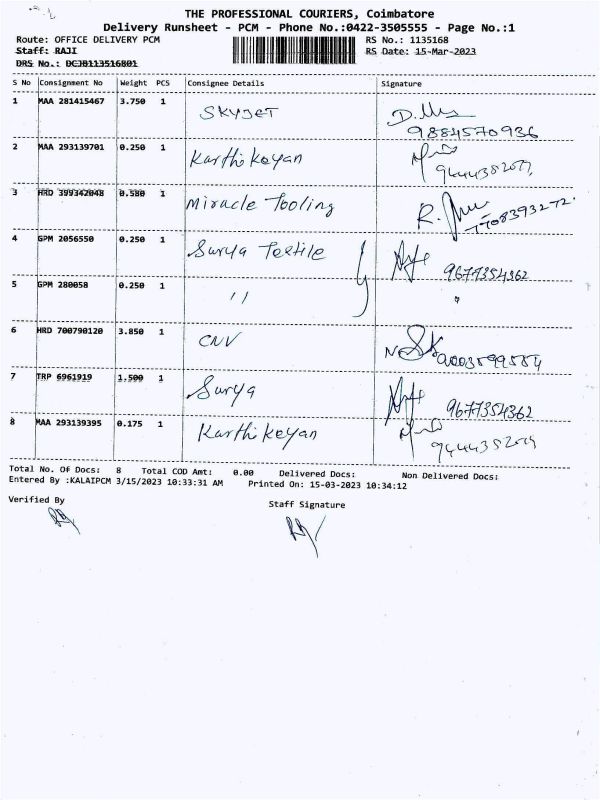 THE PROFESSIONAL COURIERS, Coimbatore
Delivery Runsheet - PCM - Phone No.:0422-3505555 - Page No.:1
Route: OFFICE DELIVERY PCM RS No.: 1135168
Staff: RAJI RS Date: 15-Mar-2023
DRS No.: DCJ8113516801
S No Consignment No Weight PCS Consignee Details Signature
1 MAA 281415467 3.750 1 SKYJET
9884570936
2 MAA 293139701 0.250 1 Karthikeyan
3 HRD 399342048 0.580 1 Miracle Tooling
7708393272.
4 GPM 2056550 0.250 1 Surya Textile
9677354362
5 GPM 280058 0.250 1 "
"
6 HRD 700790120 3.850 1 CNV
7 TRP 6961919 1.500 1 Surya
9677354362
8 MAA 293139395 0.175 1 Karthikeyan
Total No. Of Docs: 8 Total COD Amt: 0.00 Delivered Docs: Non Delivered Docs:
Entered By :KALAIPCM 3/15/2023 10:33:31 AM Printed On: 15-03-2023 10:34:12
Verified By
Staff Signature